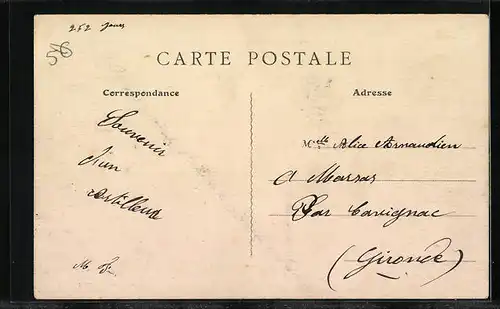 252 jours
56
CARTE POSTALE
Correspondance
Adresse
Souvenir
d'un
Artilleur
M. F.
Mlle Alice Arnaudien
à Marsas
Par Cavignac
(Gironde)